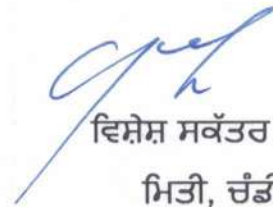 ਵਿਸ਼ੇਸ਼ ਸਕੱਤਰ
ਮਿਤੀ, ਚੰਡੀ